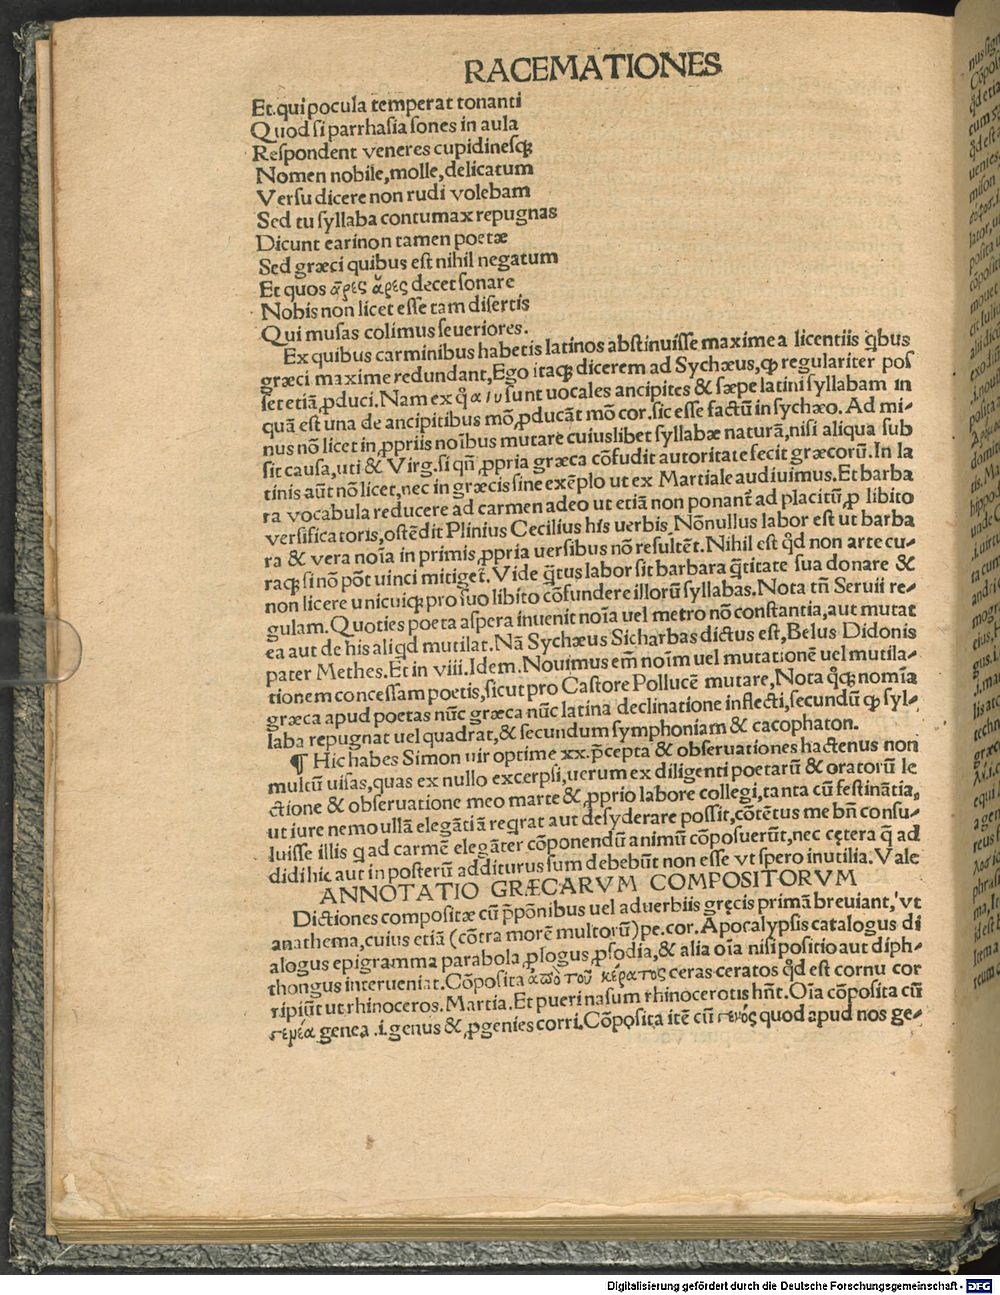 RACEMATIONES
Et.qui pocula temperat tonanti
Quod si parrhasia sones in aula
Respondent veneres cupidinesqꝫ
Nomen nobile,molle,delicatum
Versu dicere non rudi volebam
Sed tu syllaba contumax repugnas
Dicunt earinon tamen poetæ
Sed græci quibus est nihil negatum
Et quos ἆρες ἄρες decet sonare
Nobis non licet esse tam disertis
Qui musas colimus seueriores.
Ex quibus carminibus habetis latinos abstinuisse maxime a licentiis q̃bus
græci maxime redundant,Ego itaqꝫ dicerem ad Sychæus,ꝙ regulariter pos
set etiã ꝓduci. Nam ex q̃ α ι υ sunt uocales ancipites & sæpe latini syllabam in
quã est una de ancipitibus mõ ꝓducãt mõ cor.sic esse factũ in sychæo. Ad mi⸗
nus nõ licet in ꝓpriis noĩbus mutare cuiuslibet syllabæ naturã,nisi aliqua sub
sit causa,uti & Virg.si qñ ꝓpria græca cõfudit autoritate fecit græcorũ.In la
tinis aũt nõ licet,nec in græcis sine exẽplo ut ex Martiale audiuimus.Et barba
ra vocabula reducere ad carmen adeo ut etiã non ponant̃ ad placitũ ꝓ libito
versificatoris,ostẽdit Plinius Cecilius his uerbis Nõnullus labor est ut barba
ra & vera noĩa in primis ꝓpria uersibus nõ resultẽt.Nihil est q̃d non arte cu⸗
raqꝫ si nõ põt uinci mitiget̃.Vide q̃tus labor sit barbara q̃titate sua donare &
non licere unicuiqꝫ pro suo libito cõfundere illorũ syllabas.Nota tñ Seruii re⸗
gulam.Quoties poeta aspera inuenit noĩa uel metro nõ constantia,aut mutat
ea aut de his aliqd mutilat.Nã Sychæus Sicharbas dictus est,Belus Didonis
pater Methes.Et in viii.Idem.Nouimus em̃ noĩm uel mutationẽ uel mutila⸗
tionem concessam poetis,sicut pro Castore Pollucẽ mutare,Nota q̃qꝫ nomĩa
græca apud poetas nũc græca nũc latina declinatione inflecti,secundũ ꝙ syl⸗
laba repugnat uel quadrat,& secundum symphoniam & cacophaton.
¶ Hic habes Simon uir optime xx.p̃cepta & obseruationes hactenus non
multũ uisas,quas ex nullo excerpsi,uerum ex diligenti poetarũ & oratorũ le
ctione & obseruatione meo marte & ꝓprio labore collegi,tanta cũ festinãtia,
ut iure nemo ullã elegãtiã reqrat aut desyderare possit,cõtẽtus me bñ consu⸗
luisse illis q ad carmẽ elegãter cõponendũ animũ cõposuerũt,nec cętera q̃ ad
didi hic aut in posterũ additurus sum debebũt non esse vt spero inutilia. Vale
ANNOTATIO GRÆCARVM COMPOSITORVM
Dictiones compositæ cũ p̃põnibus uel aduerbiis gręcis primã breuiant,'vt
anathema,cuius etiã (cõtra morẽ multorũ)pe.cor.Apocalypsis catalogus di
alogus epigramma parabola ꝓlogus ꝓsodia,& alia oĩa nisi positio aut diph⸗
thongus interueniat.Cõposita ἀπὸ τοῦ κέρατος ceras ceratos q̃d est cornu cor
ripiũt ut rhinoceros.Martia.Et pueri nasum rhinocerotis hñt.Oĩa cõposita cũ
γενέα genea .i.genus & ꝓgenies corri.Cõposita itẽ cũ γενος quod apud nos ge⸗
Digitalisierung gefördert durch die Deutsche Forschungsgemeinschaft - DFG